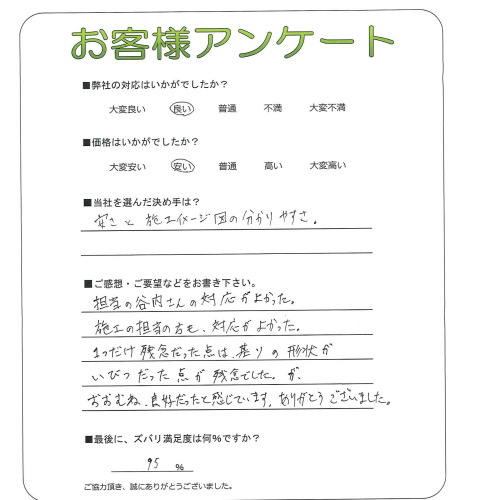 お客様アンケート
■弊社の対応はいかがでしたか？
大変良い 良い 普通 不満 大変不満
■価格はいかがでしたか？
大変安い 安い 普通 高い 大変高い
■当社を選んだ決め手は？
安さと施工イメージ図の分かりやすさ。
■ご感想・ご要望などをお書き下さい。
担当の谷内さんの対応がよかった。
施工の担当の方も、対応がよかった。
1つだけ残念だった点は、の形状が
いびつだった点が残念でした。が、
おおむね、良好だったと感じています。ありがとうございました。
■最後に、ズバリ満足度は何%ですか？
95 %
ご協力頂き、誠にありがとうございました。